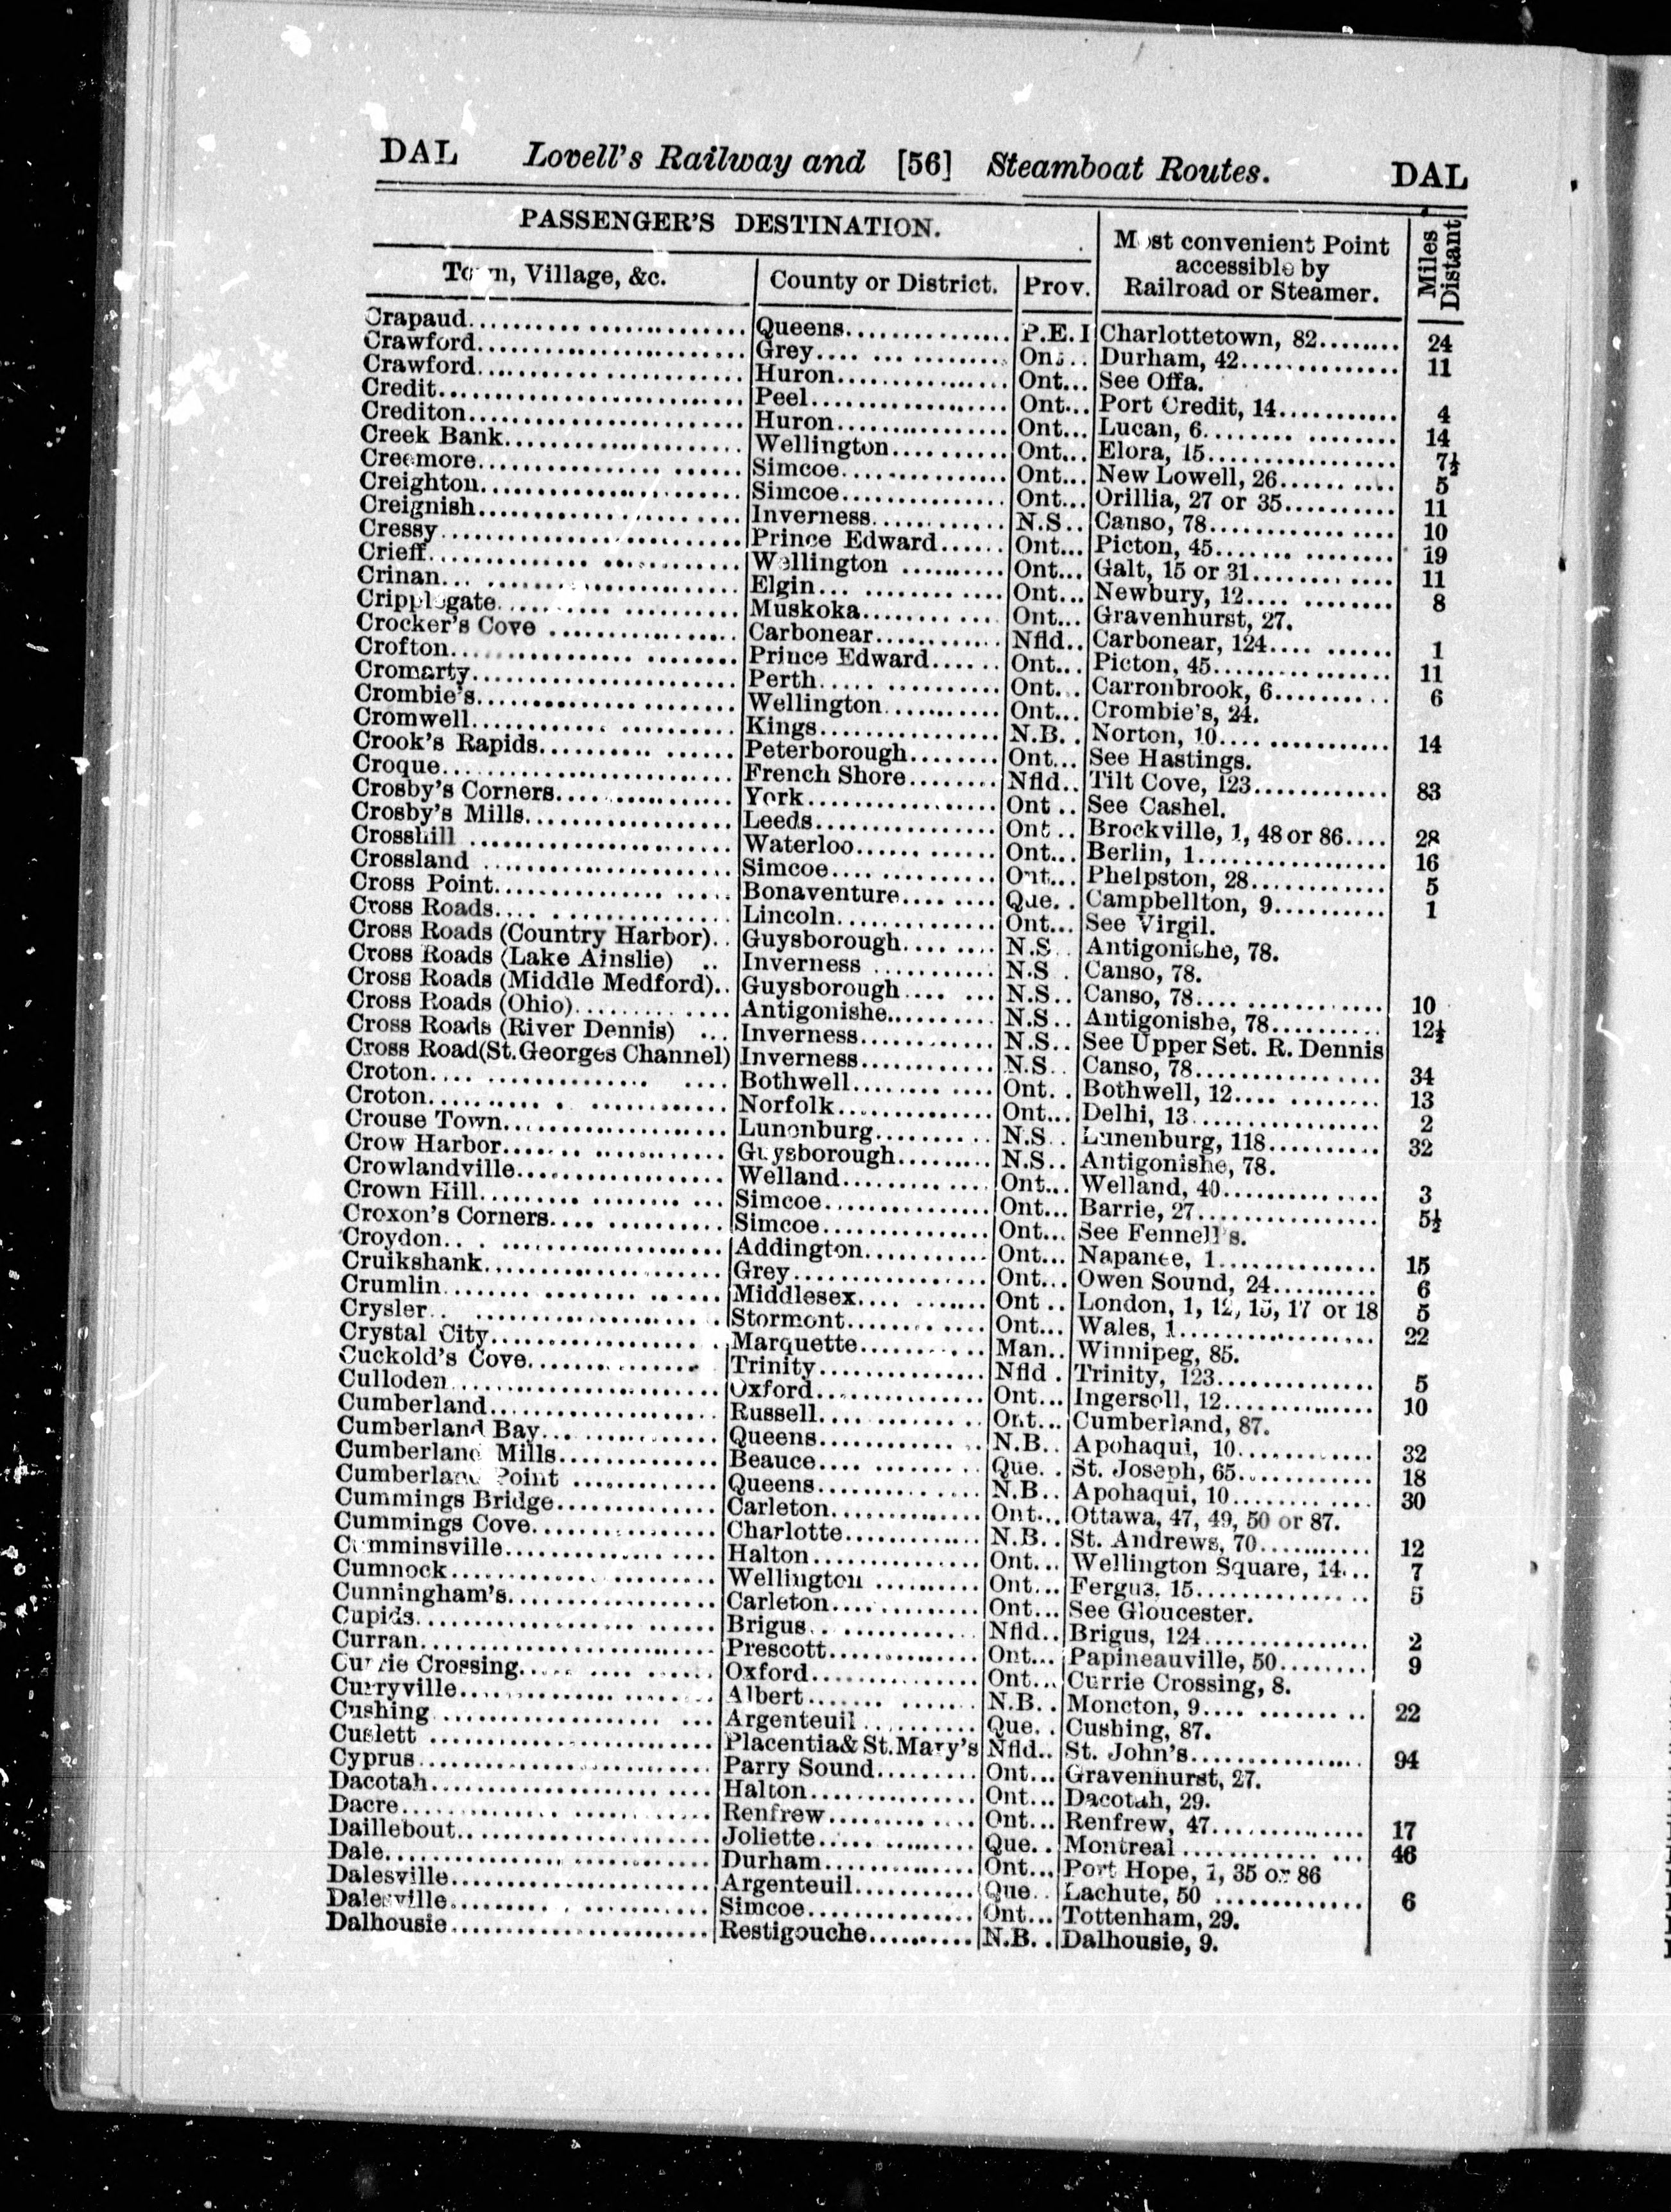 DAL Lovell's Railway and [56] Steamboat Routes. DAL
PASSENGER'S DESTINATION.
Most convenient Point accessible by Railroad or Steamer.
Miles Distant
Town, Village, &c. County or District. Prov.
Crapaud Queens P.E.I Charlottetown, 82 24
Crawford Grey Ont. Durham, 42 11
Crawford Huron Ont. See Offa.
Credit Peel Ont. Port Credit, 14 4
Crediton Huron Ont. Lucan, 6 14
Creek Bank Wellington Ont. Elora, 15 7½
Creemore Simcoe Ont. New Lowell, 26 5
Creighton Simcoe Ont. Orillia, 27 or 35 11
Creignish Inverness N.S. Canso, 78 10
Cressy Prince Edward Ont. Picton, 45 19
Crieff Wellington Ont. Galt, 15 or 31 11
Crinan Elgin Ont. Newbury, 12 8
Cripplegate Muskoka Ont. Gravenhurst, 27.
Crocker's Cove Carbonear Nfld. Carbonear, 124 1
Crofton Prince Edward Ont. Picton, 45 11
Cromarty Perth Ont. Carronbrook, 6 6
Crombie's Wellington Ont. Crombie's, 24.
Cromwell Kings N.B. Norton, 10 14
Crook's Rapids Peterborough Ont. See Hastings.
Croque French Shore Nfld. Tilt Cove, 123 83
Crosby's Corners York Ont. See Cashel.
Crosby's Mills Leeds Ont. Brockville, 1, 48 or 86 28
Crosshill Waterloo Ont. Berlin, 1 16
Crossland Simcoe Ont. Phelpston, 28 5
Cross Point Bonaventure Que. Campbellton, 9 1
Cross Roads Lincoln Ont. See Virgil.
Cross Roads (Country Harbor) Guysborough N.S. Antigonishe, 78.
Cross Roads (Lake Ainslie) Inverness N.S. Canso, 78.
Cross Roads (Middle Medford) Guysborough N.S. Canso, 78 10
Cross Roads (Ohio) Antigonishe N.S. Antigonishe, 78 12½
Cross Roads (River Dennis) Inverness N.S. See Upper Set. R. Dennis
Cross Road(St.Georges Channel) Inverness N.S. Canso, 78 34
Croton Bothwell Ont. Bothwell, 12 13
Croton Norfolk Ont. Delhi, 13 2
Crouse Town Lunenburg N.S. Lunenburg, 118 32
Crow Harbor Guysborough N.S. Antigonishe, 78.
Crowlandville Welland Ont. Welland, 40 3
Crown Hill Simcoe Ont. Barrie, 27 5½
Croxon's Corners Simcoe Ont. See Fennell's.
Croydon Addington Ont. Napanee, 1 15
Cruikshank Grey Ont. Owen Sound, 24 6
Crumlin Middlesex Ont. London, 1, 12, 15, 17 or 18 5
Crysler Stormont Ont. Wales, 1 22
Crystal City Marquette Man. Winnipeg, 85.
Cuckold's Cove Trinity Nfld. Trinity, 123 5
Culloden Oxford Ont. Ingersoll, 12 10
Cumberland Russell Ont. Cumberland, 87.
Cumberland Bay Queens N.B. Apohaqui, 10 32
Cumberland Mills Beauce Que. St. Joseph, 65 18
Cumberland Point Queens N.B. Apohaqui, 10 30
Cummings Bridge Carleton Ont. Ottawa, 47, 49, 50 or 87.
Cummings Cove Charlotte N.B. St. Andrews, 70 12
Cumminsville Halton Ont. Wellington Square, 14 7
Cumnock Wellington Ont. Fergus, 15 5
Cunningham's Carleton Ont. See Gloucester.
Cupids Brigus Nfld. Brigus, 124 2
Curran Prescott Ont. Papineauville, 50 9
Currie Crossing Oxford Ont. Currie Crossing, 8.
Curryville Albert N.B. Moncton, 9 22
Cushing Argenteuil Que. Cushing, 87.
Cuslett Placentia& St.Mary's Nfld. St. John's 94
Cyprus Parry Sound Ont. Gravenhurst, 27.
Dacotah Halton Ont. Dacotah, 29.
Dacre Renfrew Ont. Renfrew, 47 17
Daillebout Joliette Que. Montreal 46
Dale Durham Ont. Port Hope, 1, 35 or 86
Dalesville Argenteuil Que. Lachute, 50 6
Dalesville Simcoe Ont. Tottenham, 29.
Dalhousie Restigouche N.B. Dalhousie, 9.